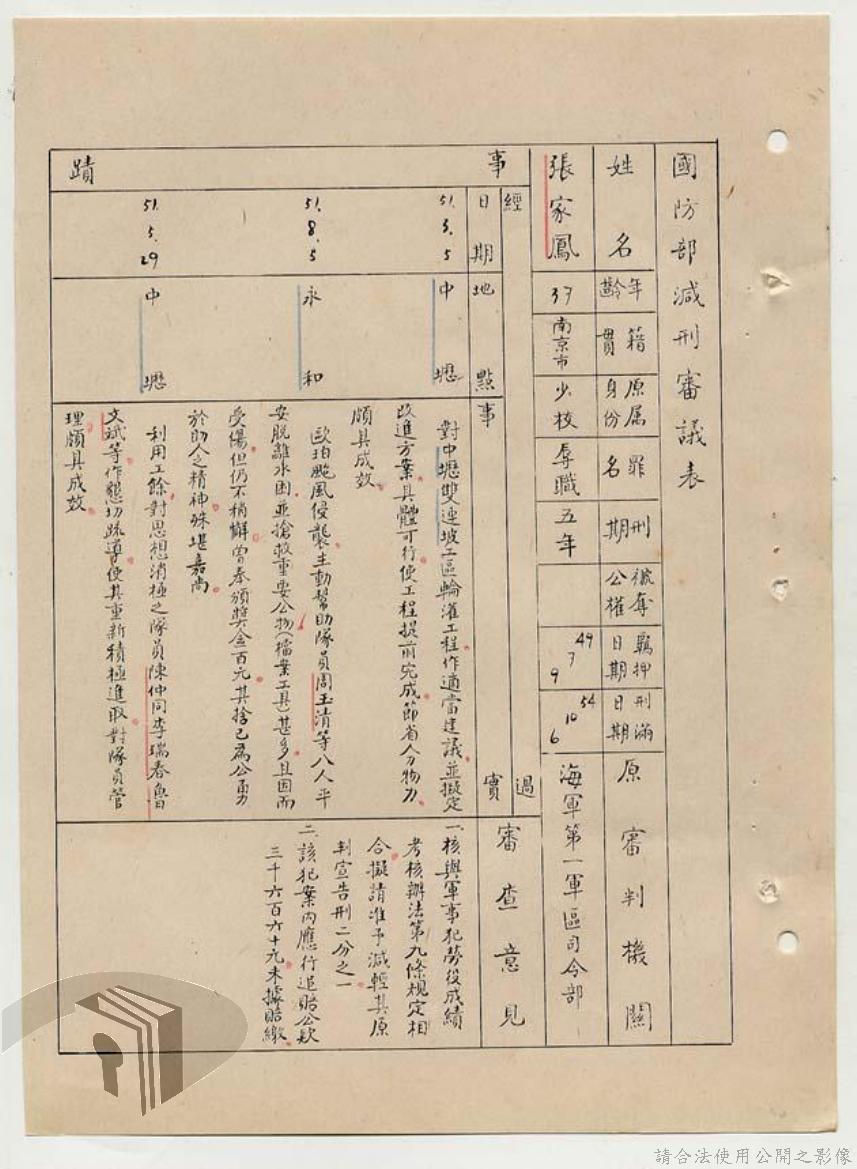 國防部減刑審議表
姓名
年齡
籍貫
原屬身份
罪名
刑期
褫奪公權
羈押日期
刑滿日期
原審判機關
張家鳳
37
南京市
少校
辱職
五年
49
7
9
54
10
6
海軍第一軍區司令部
事蹟
經過
日期
地點
事實
審查意見
51.3.5
中壢
對中壢雙連坡工區輪灌工程作適當建議並擬定
改進方案具體可行使工程提前完成節省人力物力
頗具成效
51.8.5
永和
歐珀颱風侵襲主動幫助隊員周玉清等八人平
安脫離水困並搶救重要公物(檔案工具)甚多且因而
受傷但仍不稍懈曾奉頒獎金百元其捨己為公勇
於助人之精神殊堪嘉尚
51.5.29
中壢
利用工餘對思想消極之隊員陳仲同李瑞春魯
文斌等作懇切疏導使其重新積極進取對隊員管
理頗具成效
一、核與軍事犯勞役成績
考核辦法第九條規定相
合擬請准予減輕其原
判宣告刑二分之一
二、該犯案內應行追賠公款
三千六百六十元未據賠繳
請合法使用公開之影像